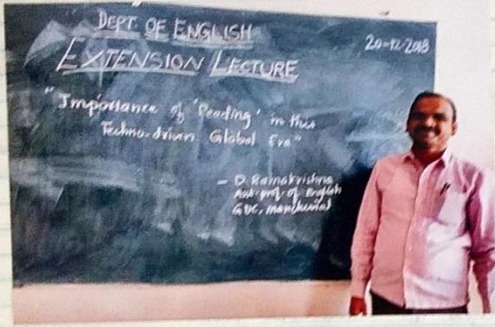 DEPT. OF ENGLISH
20-12-2018
EXTENSION LECTURE
"Importance of 'Reading' in this
Techno-driven Global Era"
- D. Ramakrishna
Asst. prof. of English
GDC, Mancherial